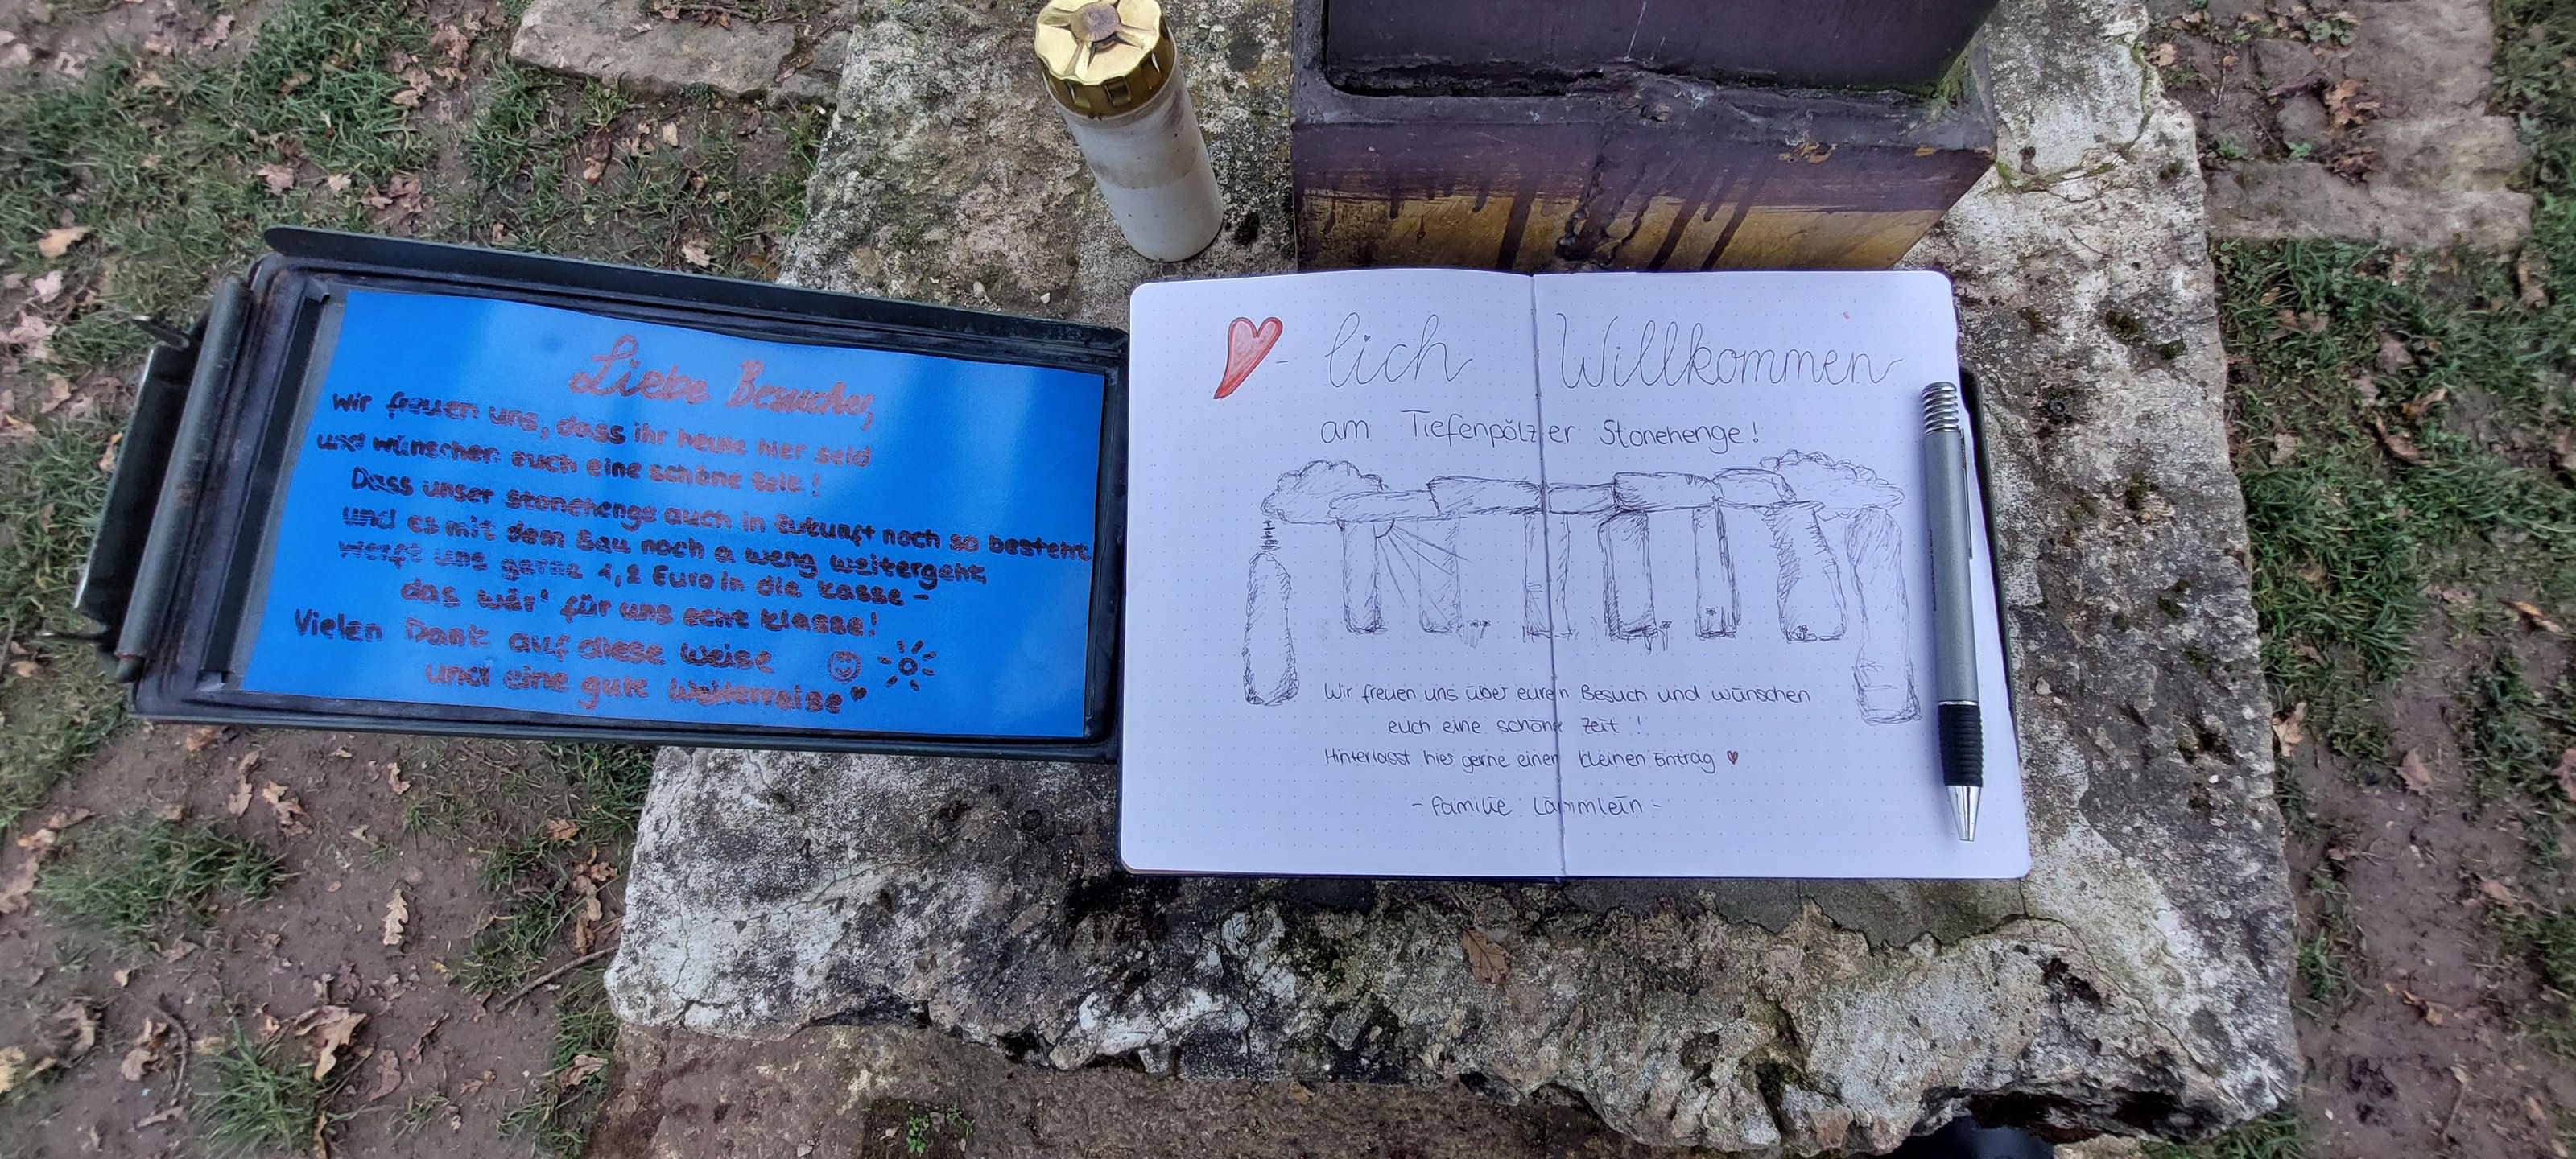 Liebe Besucher,
Wir freuen uns, dass ihr heute hier seid
und wünschen euch eine schöne Zeit!
Dass unser Stonehenge auch in Zukunft noch so besteht
und es mit dem Bau noch a weng weitergeht,
werft uns gerne 1,2 Euro in die Kasse -
das wär' für uns echt klasse!
Vielen Dank auf diese Weise
und eine gute Weiterreise
- lich Willkommen
am Tiefenpölzer Stonehenge!
Wir freuen uns über euren Besuch und wünschen
euch eine schöne Zeit!
Hinterlasst hier gerne einen kleinen Eintrag
- Familie Lämmlein -